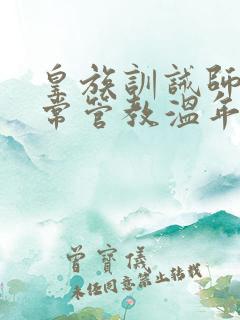 皇族訓誡師
常管教溫年
曾寶儀
未經同意禁止轉載